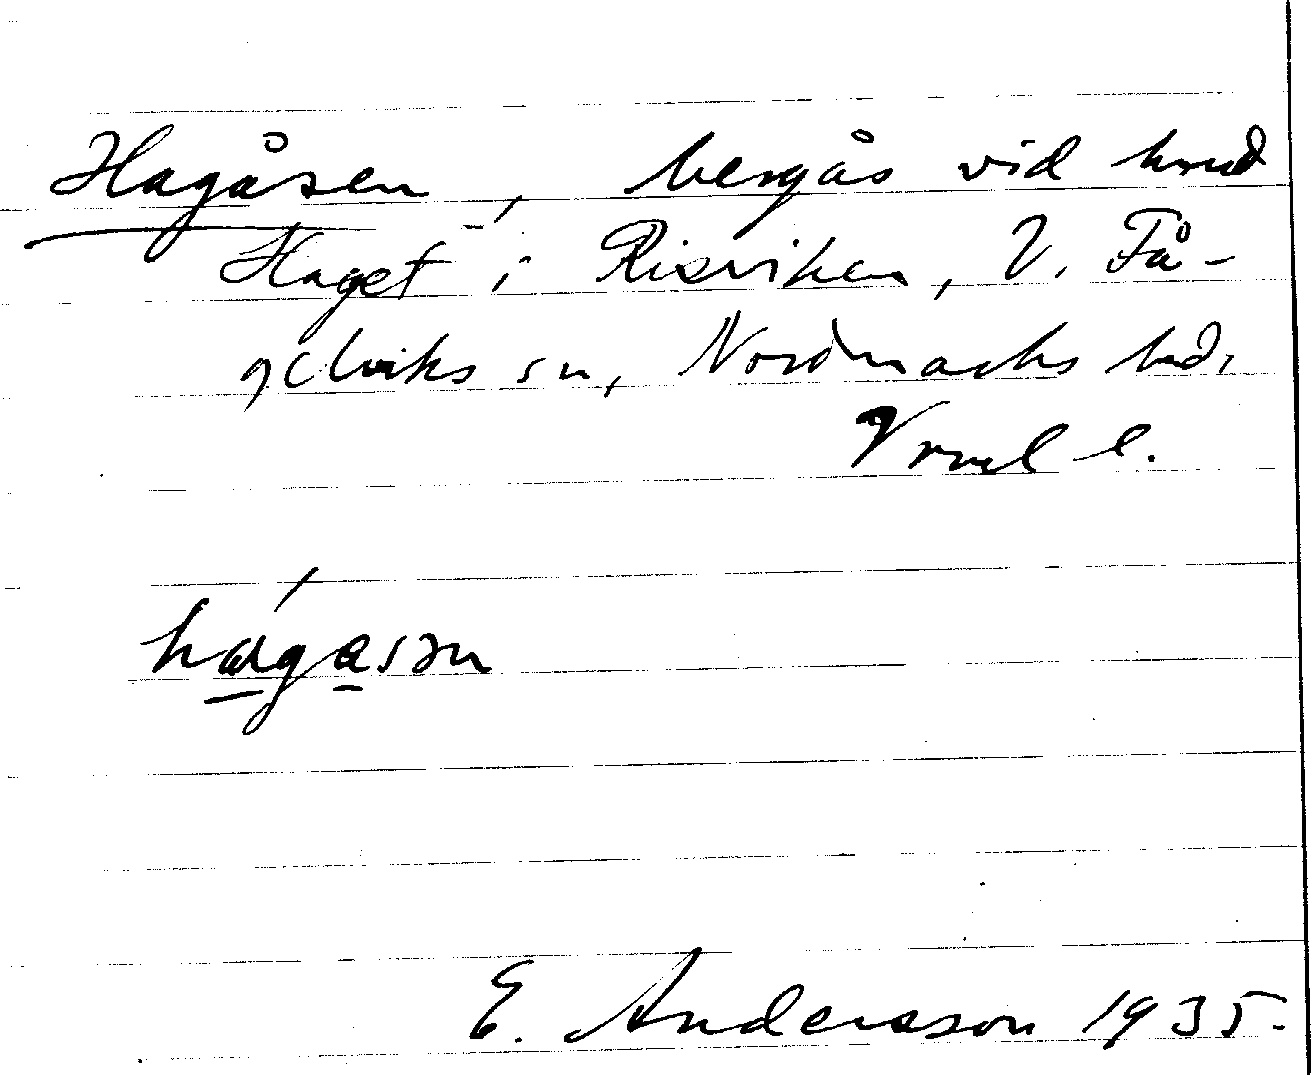 Hagåsen, bergås vid hmd
Haget i Risviken, V. Få-
gelviks sn, Nordmarks hd,
Vrml l.
hagasən
E. Andersson 1935.